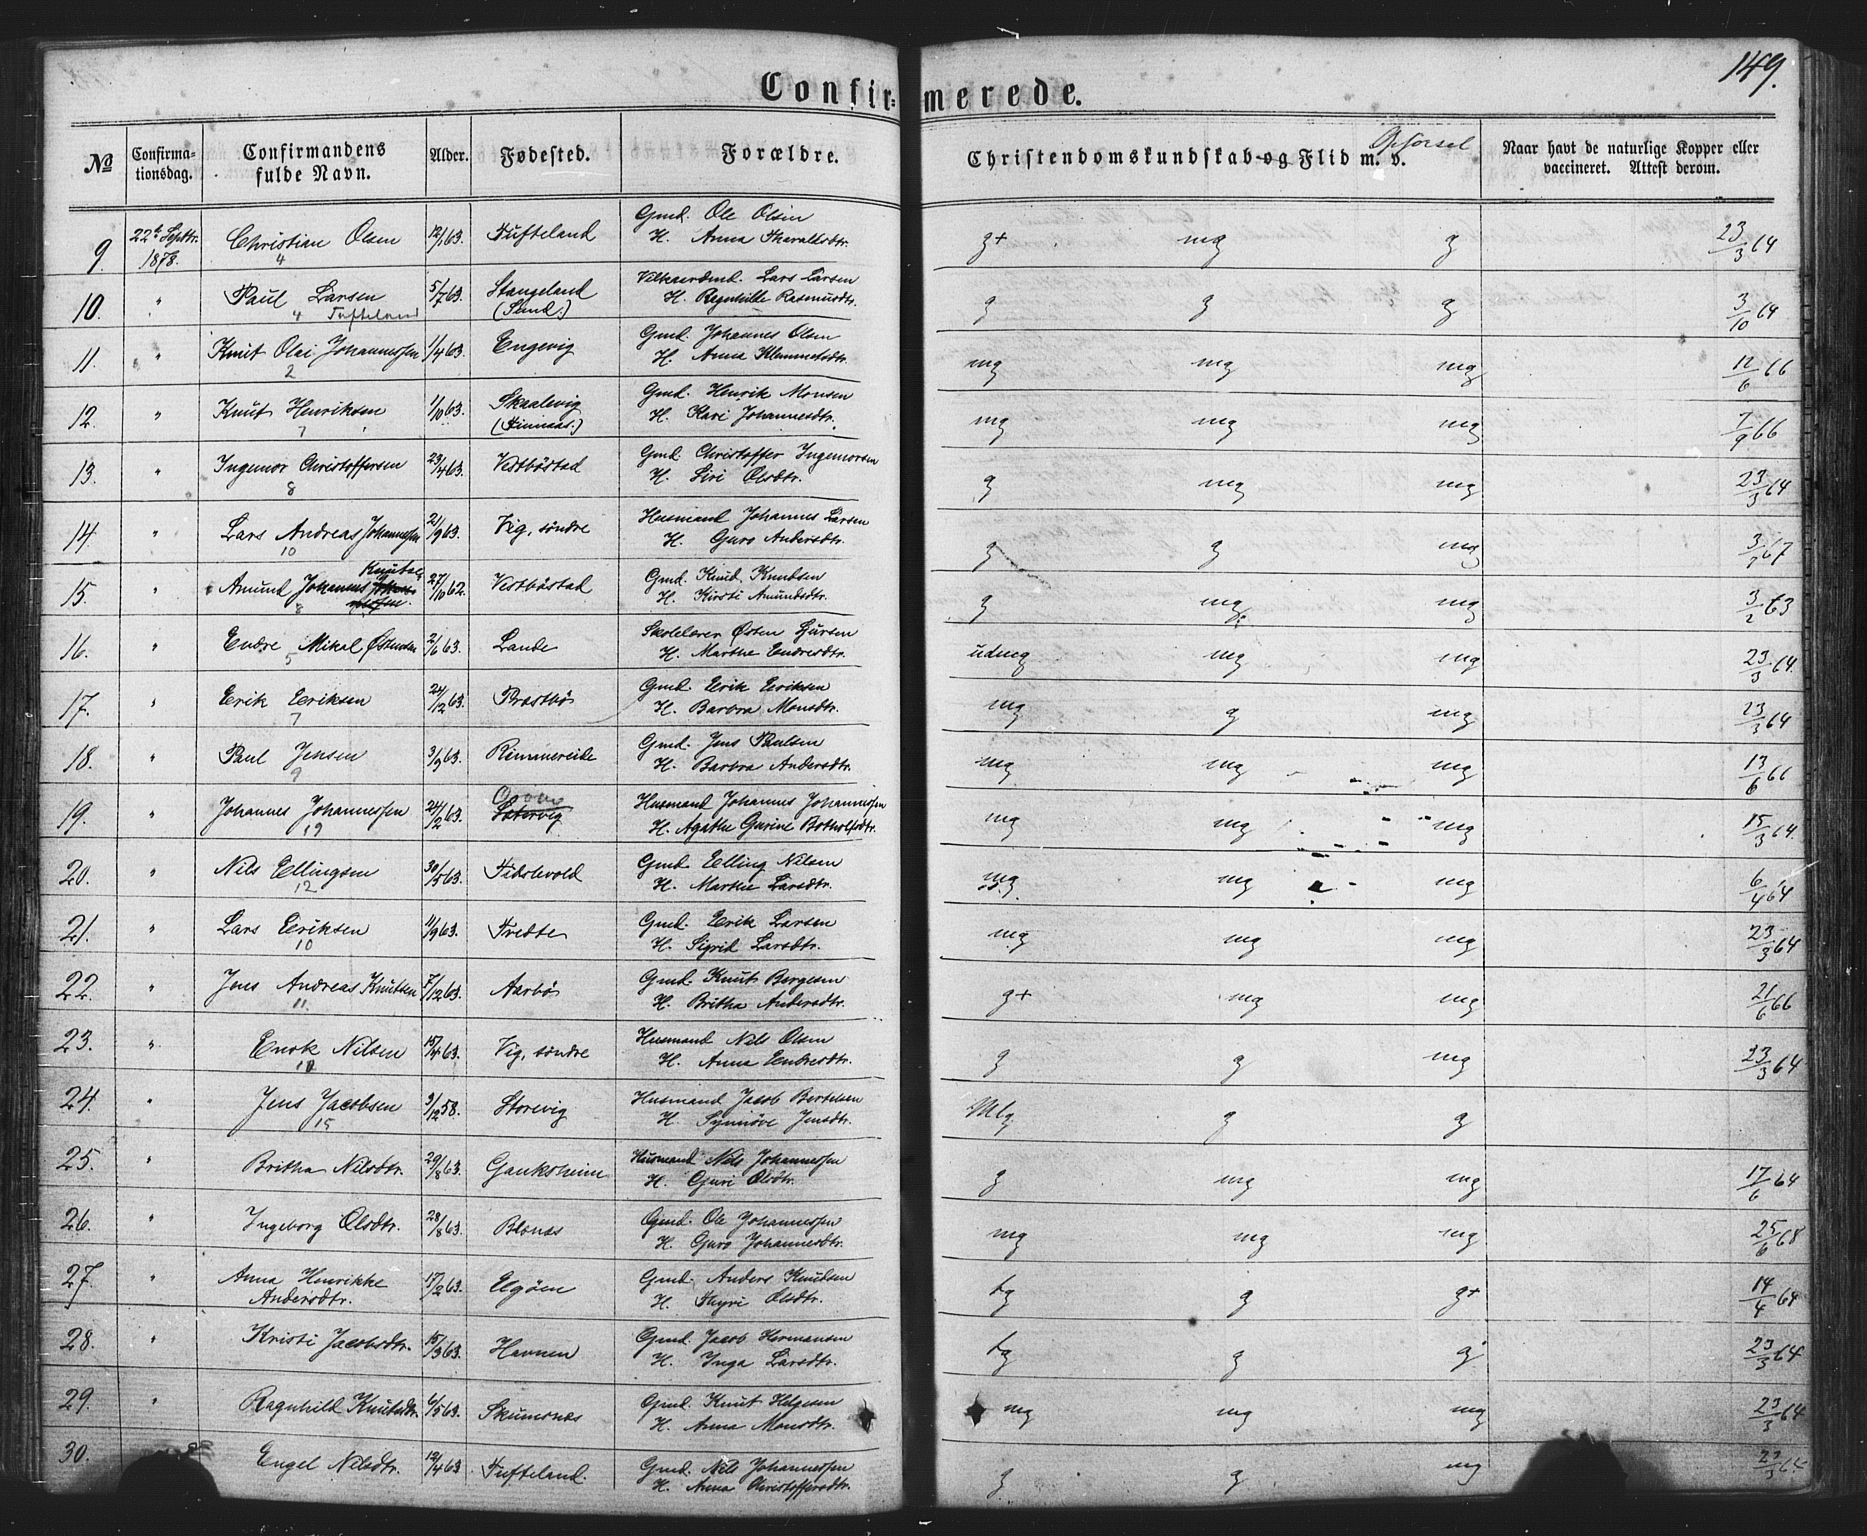 149.
Confirmerede.
No
Confirmationsdag.
Confirmandens fulde Navn.
Alder.
Fødested.
Forældre.
Christendomskundskab og Flid m. v.
Opførsel
Naar havt de naturlige Kopper eller vaccineret. Attest derom.
9. 22de Septbr. 1878. Christian Olsen 4 12/1 63. Tufteland Gmd. Ole Olsen g+ mg g 23/3 64
H. Anna Tharaldsdtr.
10. " Paul Larsen 5/7 63. Stangeland Vilkaarsmd. Lars Larsen g g g 3/10 64
4 Tufteland (Sund.) H. Regnhille Rasmusdtr.
11. " Knut Olai Johannessen 2 1/4 63. Engevig Gmd. Johannes Olsen mg mg mg 12/6 66
H. Anna Klemmetsdtr.
12. " Knut Henriksen 7 1/10 63. Skaalevig Gmd. Henrik Monsen mg mg mg 7/9 66
(Finnaas.) H. Kari Johannesdtr.
13. " Ingemor Christoffersen 8 23/4 63. Vestbøstad Gmd. Christoffer Ingemorsen g mg mg 23/3 64
H. Siri Olsdtr.
14. " Lars Andreas Johannessen 10 21/9 63. Vig, søndre Husmand Johannes Larsen g g mg 3/7 67
H. Guro Andersdtr.
15. " Amund Johannes Knutsen 8 27/10 62. Vestbøstad Gmd. Knud Knudsen g mg mg 3/2 63
H. Kirsti Amundsdtr.
16. " Endre Mikal Østensen 5 2/6 63. Lande Skolelærer Østen Sjursen udmg mg mg 23/3 64.
H. Marthe Endresdtr.
17. " Eerik Eeriksen 7 24/12 63. Brastbø Gmd. Eerik Eeriksen mg g mg 23/3 64
H. Barbra Monsdtr.
18. " Paul Jensen 9 3/9 63. Rimmereide Gmd. Jens Paulsen mg mg mg 13/6 66
H. Barbra Andersdtr.
19. " Johannes Johannessen 19 24/2 63. Husmand Johannes Johannessen mg mg mg 15/3 64.
H. Agathe Gurine Botholfsdtr.
20. " Nils Ellingsen 12 30/5 63. Fidslevold Gmd. Elling Nilsen mg mg mg 6/4 64
H. Marthe Larsdtr.
21. " Lars Eeriksen 10 11/9 63. Tredte Gmd. Eerik Larsen mg mg mg 23/3 64
H. Sigrid Larsdtr.
22. " Jens Andreas Knutsen 11. 7/12 63. Aarbø Gmd. Knut Børgesen g+ mg mg 21/6 66
H. Britha Andersdtr.
23. " Enok Nilsen 10 15/4 63. Vig, søndre Husmand Nils Olsen g g mg 23/3 64
H. Anna Eendresdtr.
24. " Jens Jacobsen 15 3/12 58. Storevig Husmand Jacob Bertelsen Mlg g g
H. Synnøve Jensdtr.
25. " Britha Nilsdtr. 29/8 63. Gauksheim Husmand Nils Johannessen g mg mg 17/6 64
H. Guri Olsdtr.
26. " Ingeborg Olsdtr. 28/8 63. Blonæs Gmd. Ole Johannessen mg mg mg 25/6 68
H. Guro Johannesdtr.
27. " Anna Henrikke 17/2 63. Elgøen Gmd. Anders Knudsen tg g g+ 14/4 64
Andersdtr. H. Thyri Olsdtr.
28. " Kristi Jacobsdtr. 15/3 63. Havnen Gmd. Jacob Hermansen tg g g 23/3 64
H. Inga Larsdtr.
29. " Ragnhild Knutsdtr. 6/5 63. Skumsnæs Gmd. Knut Helgesen mg mg mg 23/3 64
H. Anna Monsdtr.
30. Engel Nilsdtr. 12/4 63 Tufteland. Gmd. Nils Johannessen g g mg 23/3 64.
H. Anna Christoffersdtr.